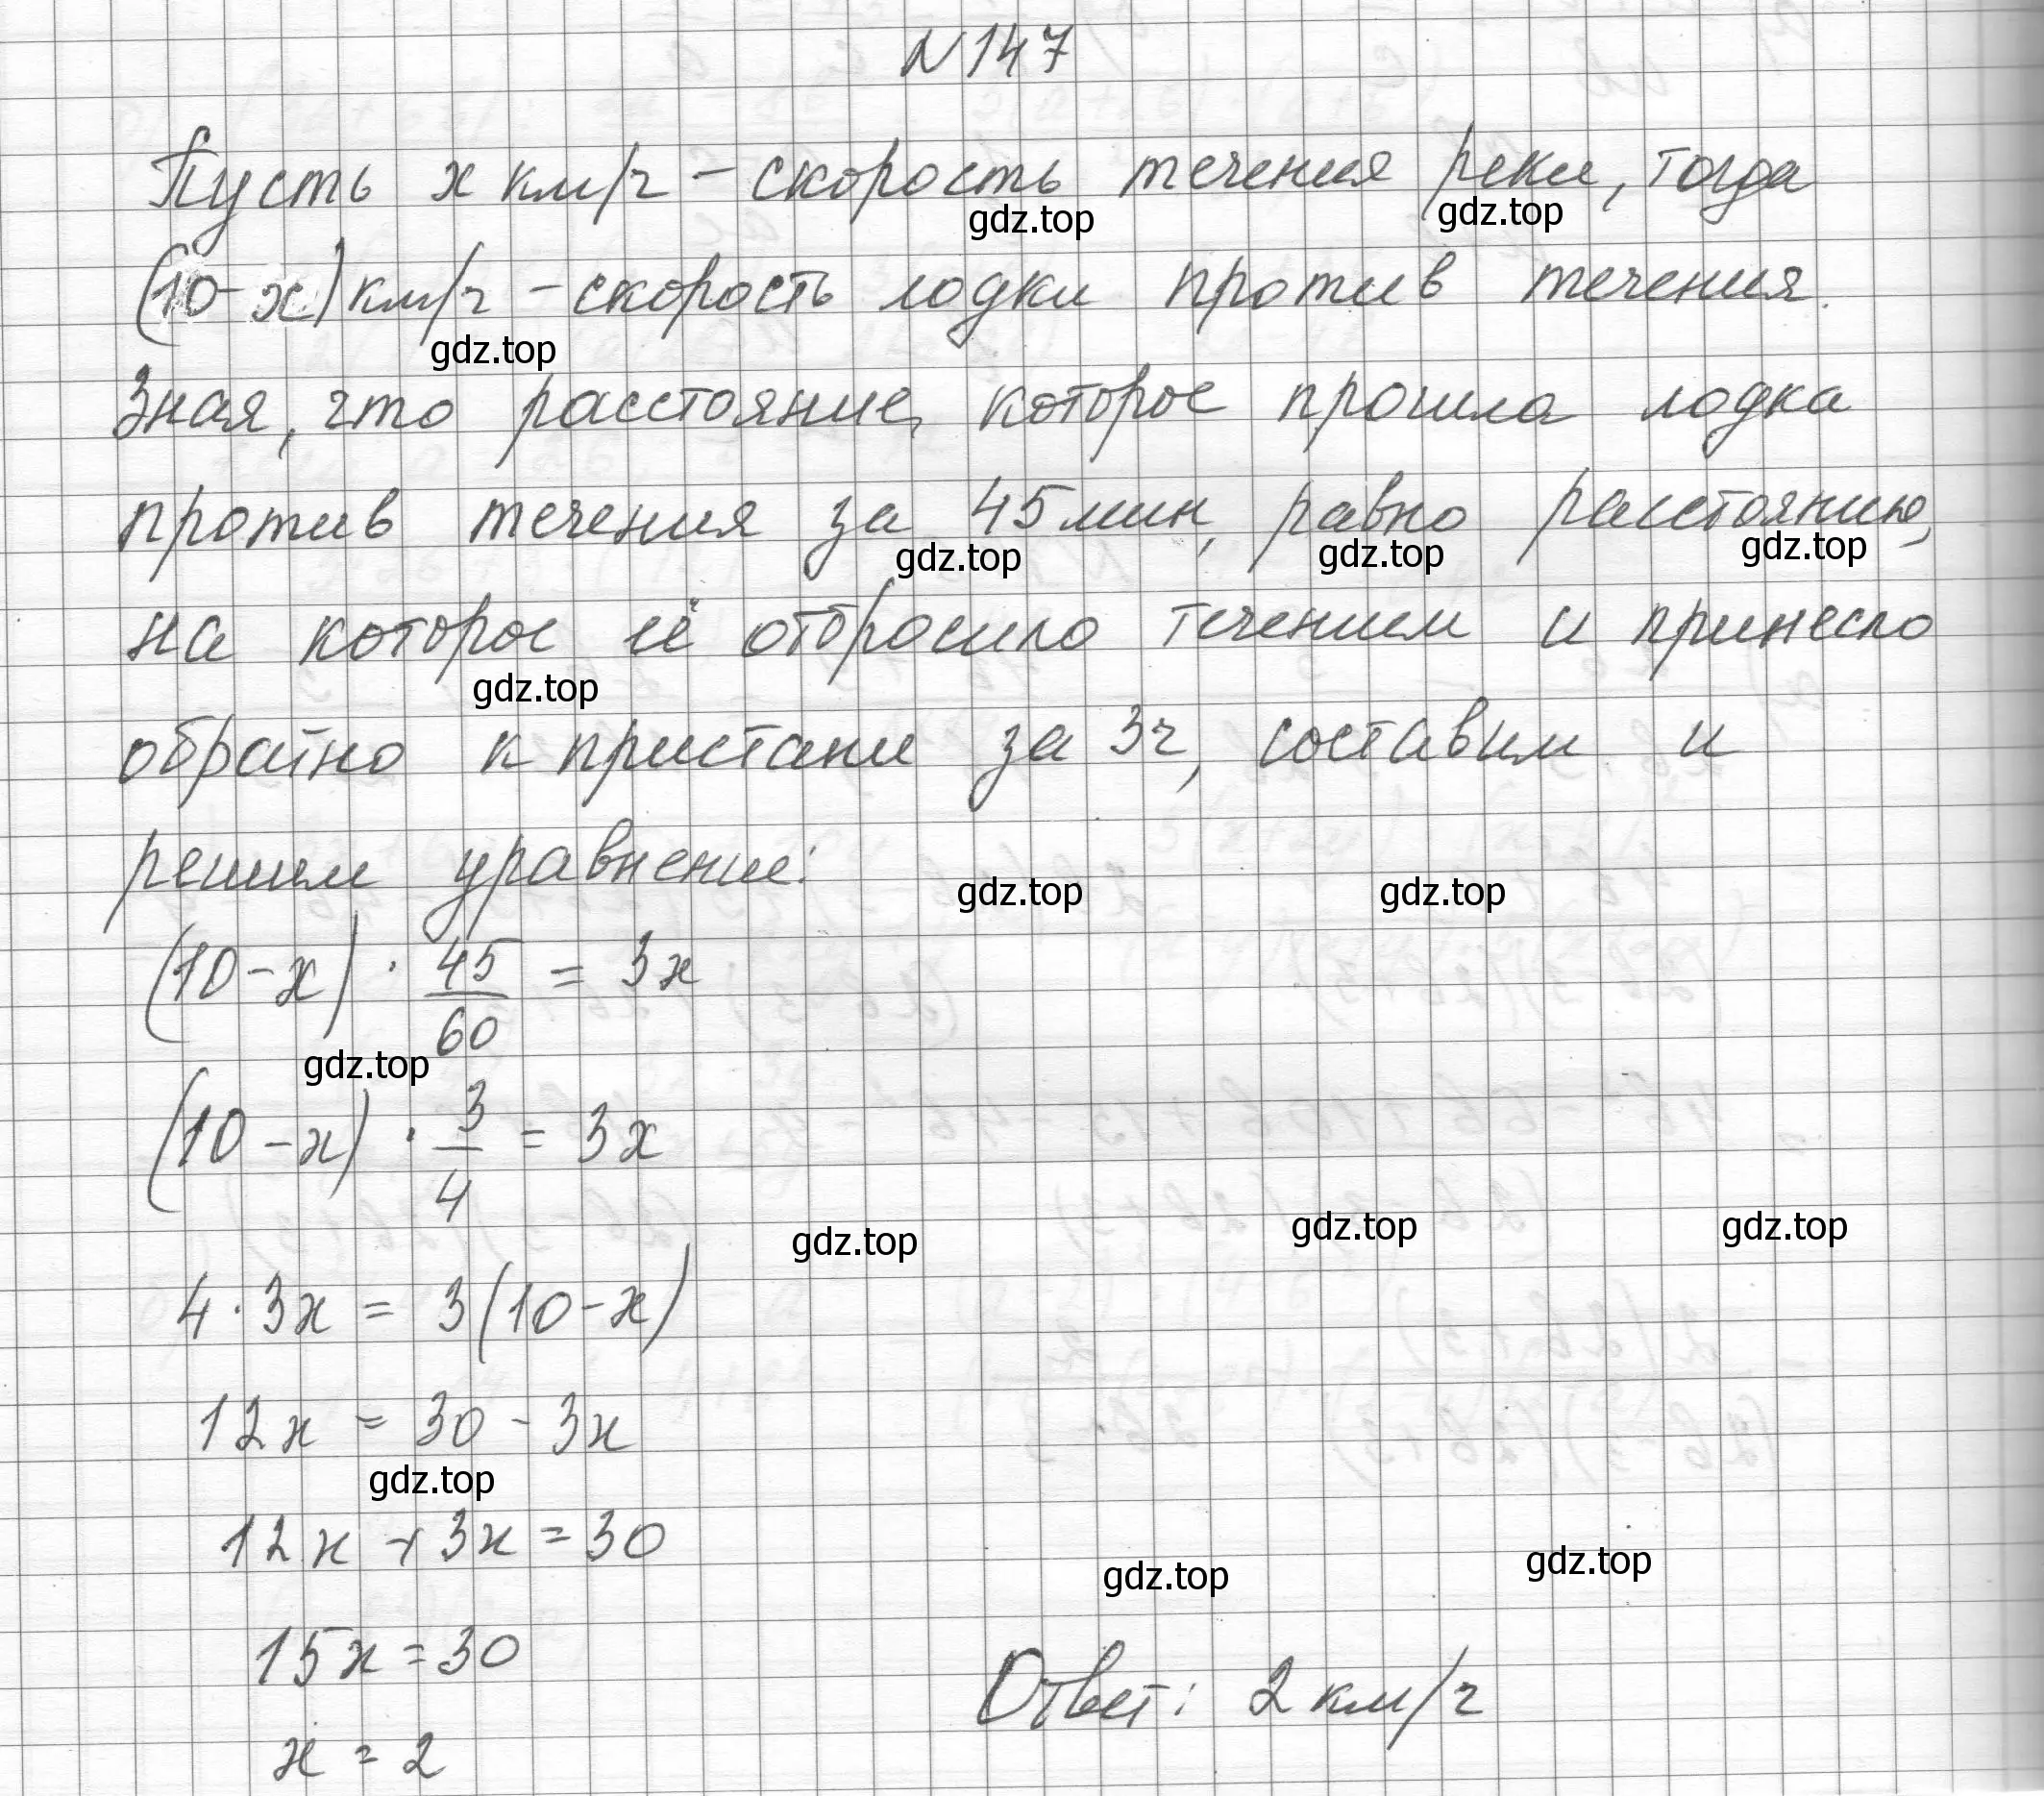 N 147
Пусть x км/ч – скорость течения реки, тогда
gdz.top gdz.top
(10-x) км/ч – скорость лодки против течения.
gdz.top
Зная, что расстояние, которое прошла лодка
против течения за 45 мин, равно расстоянию,
gdz.top gdz.top gdz.top
на которое её отбросило течением и принесло
gdz.top
обратно к пристани за 3ч, составим и
решим уравнение:
gdz.top gdz.top
(10-x) · 45/60 = 3x
gdz.top
(10-x) · 3/4 = 3x
gdz.top gdz.top gdz.top
4 · 3x = 3(10-x)
12x = 30 - 3x
gdz.top
12x + 3x = 30
gdz.top gdz.top
15x = 30
Ответ: 2 км/ч
x = 2